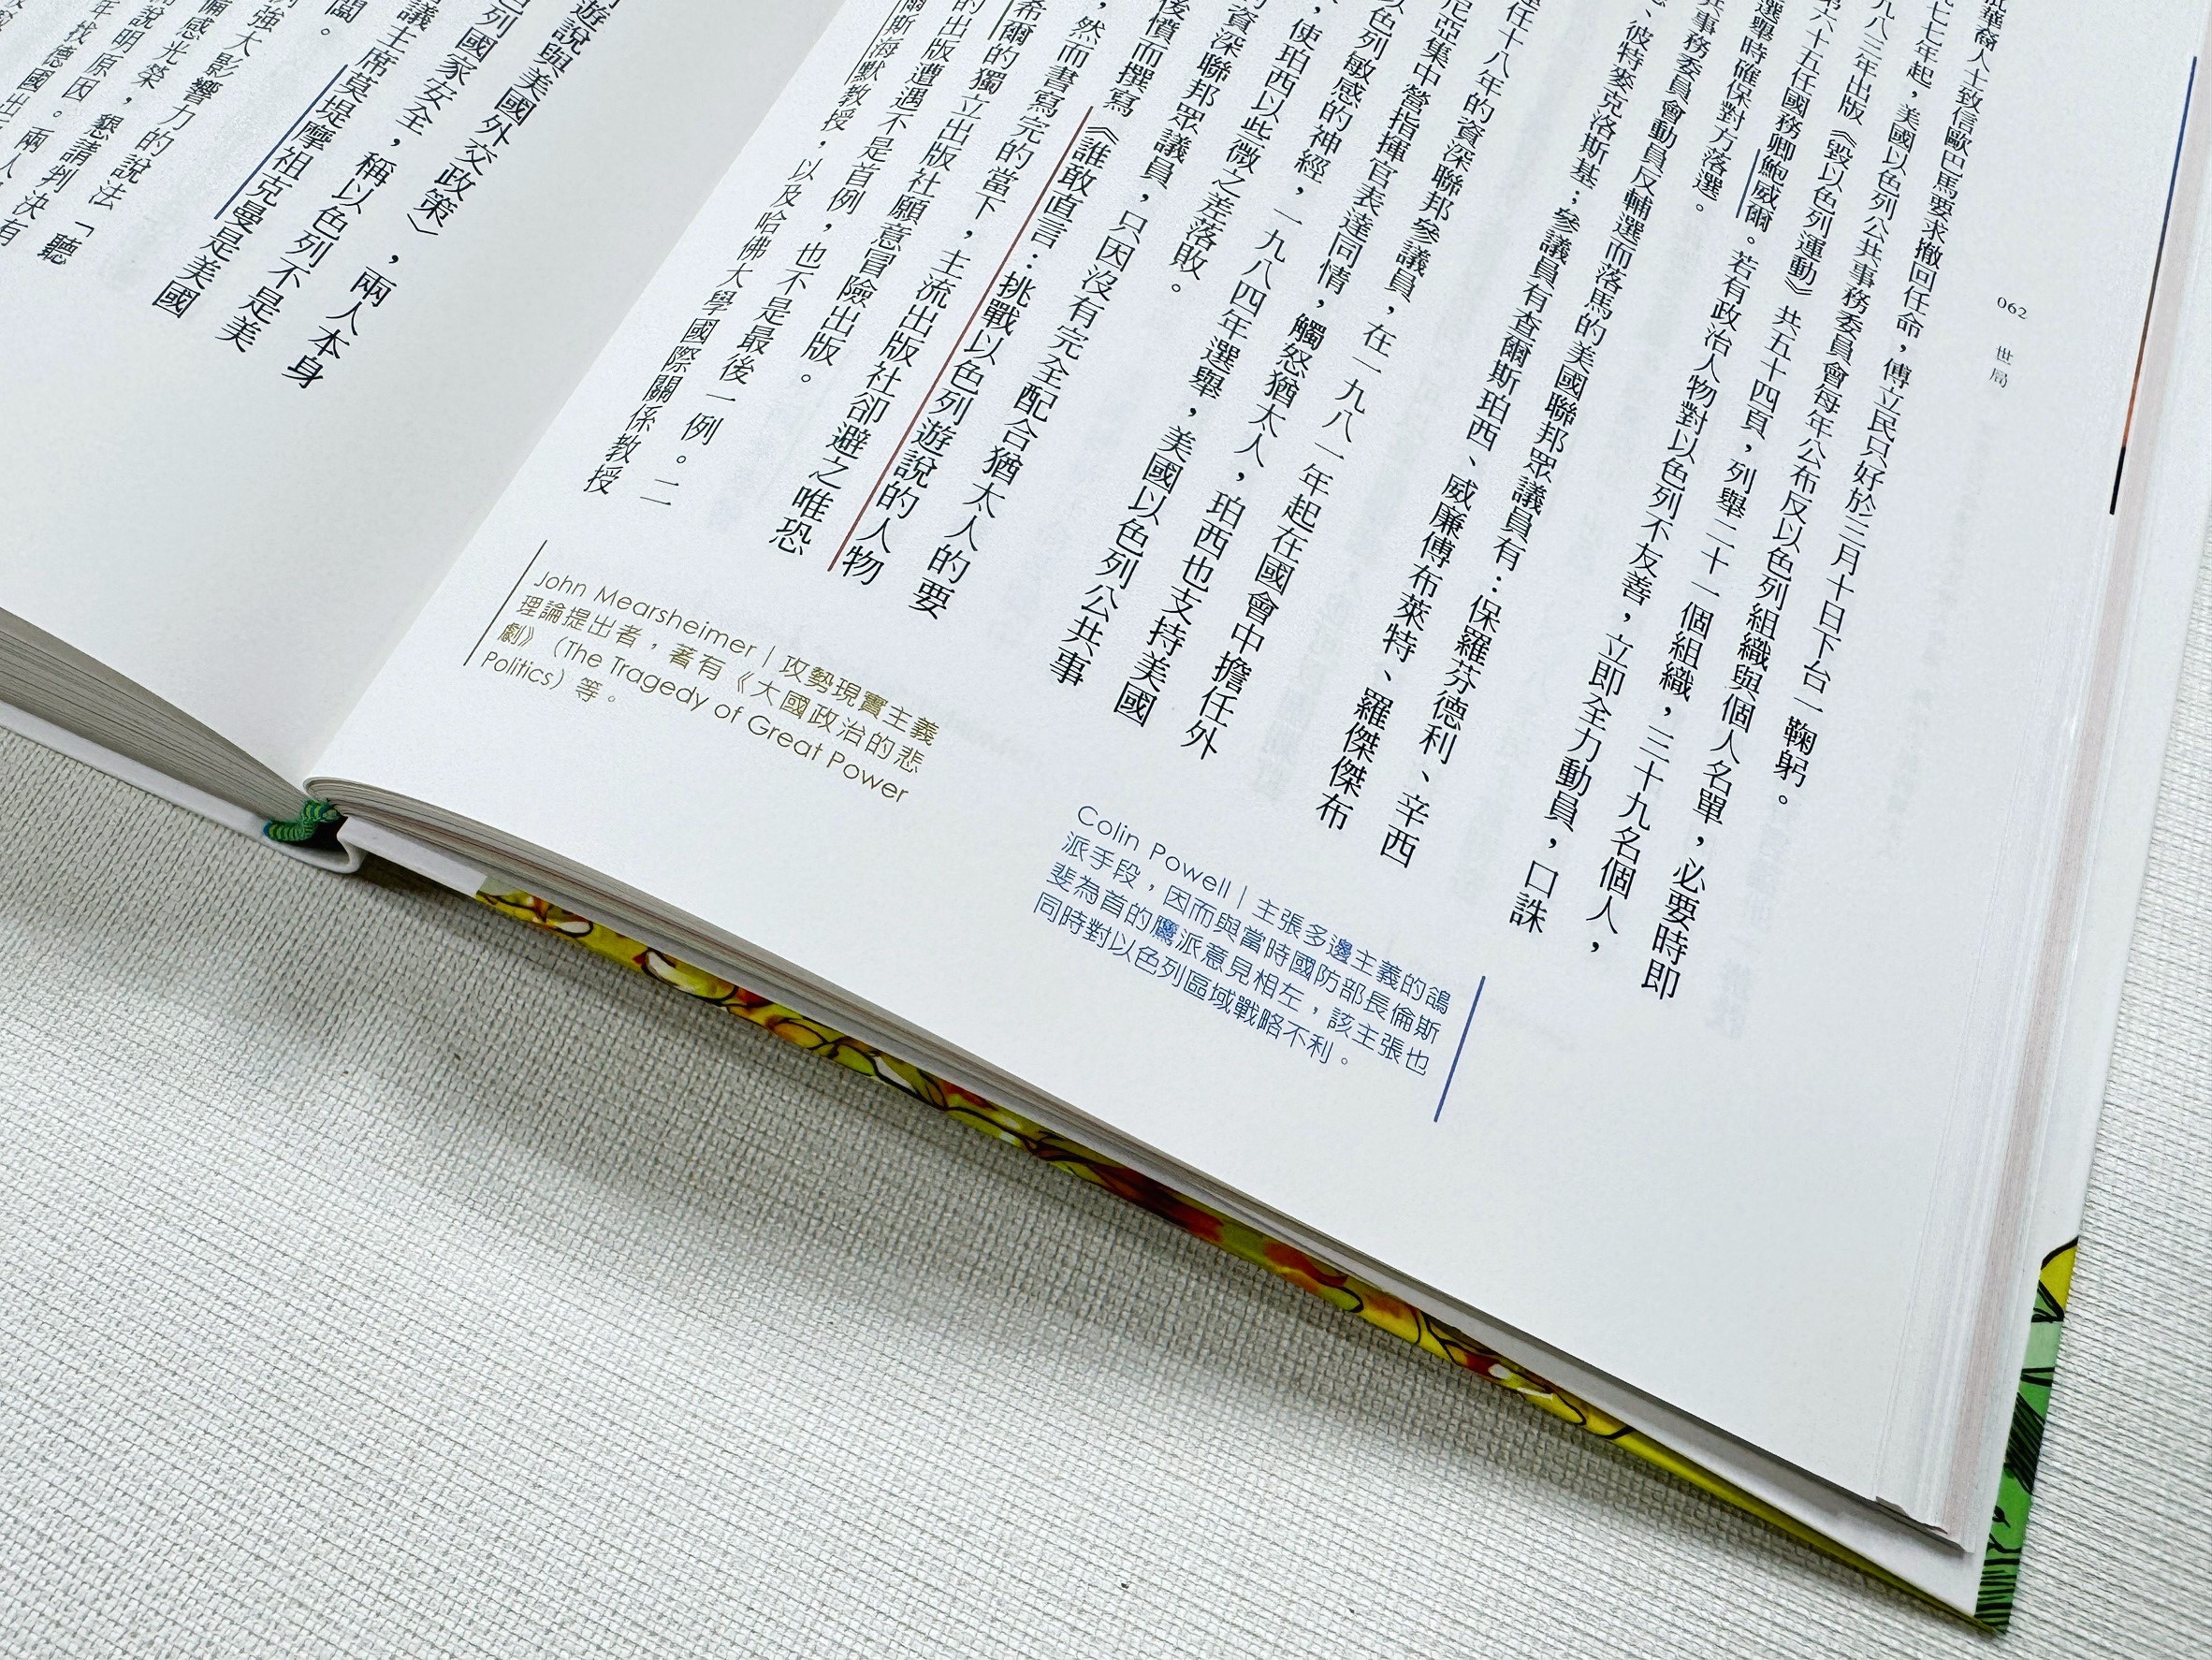 062 世局
批華裔人士致信歐巴馬要求撤回任命，傅立民只好於三月十日下台一鞠躬。
七七年起，美國以色列公共事務委員會每年公布反以色列組織與個人名單，必要時即
九八三年出版《毀以色列運動》共五十四頁，列舉二十一個組織，三十九名個人，
第六十五任國務卿鮑威爾。若有政治人物對以色列不友善，立即全力動員，口誅
選舉時確保對方落選。
共事務委員會動員反輔選而落馬的美國聯邦眾議員有：保羅芬德利、辛西
、彼特麥克洛斯基；參議員有查爾斯珀西、威廉傅布萊特、羅傑傑布
任十八年的資深聯邦參議員，在一九八一年起在國會中擔任外
尼亞集中營指揮官表達同情，觸怒猶太人，珀西也支持美國
以色列敏感的神經，一九八四年選舉，美國以色列公共事
，使珀西以些微之差落敗。
的資深聯邦眾議員，只因沒有完全配合猶太人的要
後憤而撰寫《誰敢直言：挑戰以色列遊說的人物
，然而書寫完的當下，主流出版社卻避之唯恐
希爾的獨立出版社願意冒險出版。
的出版遭遇不是首例，也不是最後一例。二
爾斯海默教授，以及哈佛大學國際關係教授
Colin Powell｜主張多邊主義的鴿
派手段，因而與當時國防部長倫斯
斐為首的鷹派意見相左，該主張也
同時對以色列區域戰略不利。
John Mearsheimer｜攻勢現實主義
理論提出者，著有《大國政治的悲
劇》（The Tragedy of Great Power
Politics）等。
遊說與美國外交政策〉，兩人本身
色列國家安全，稱以色列不是美
議主席莫堤摩祖克曼是美國
強大影響力的說法「聽
備感光榮，懇請判決有
說明原因。兩人
年找德國出